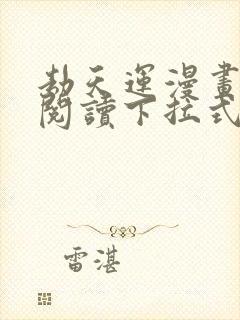 劫天運漫畫
閱讀下拉式
雷湛